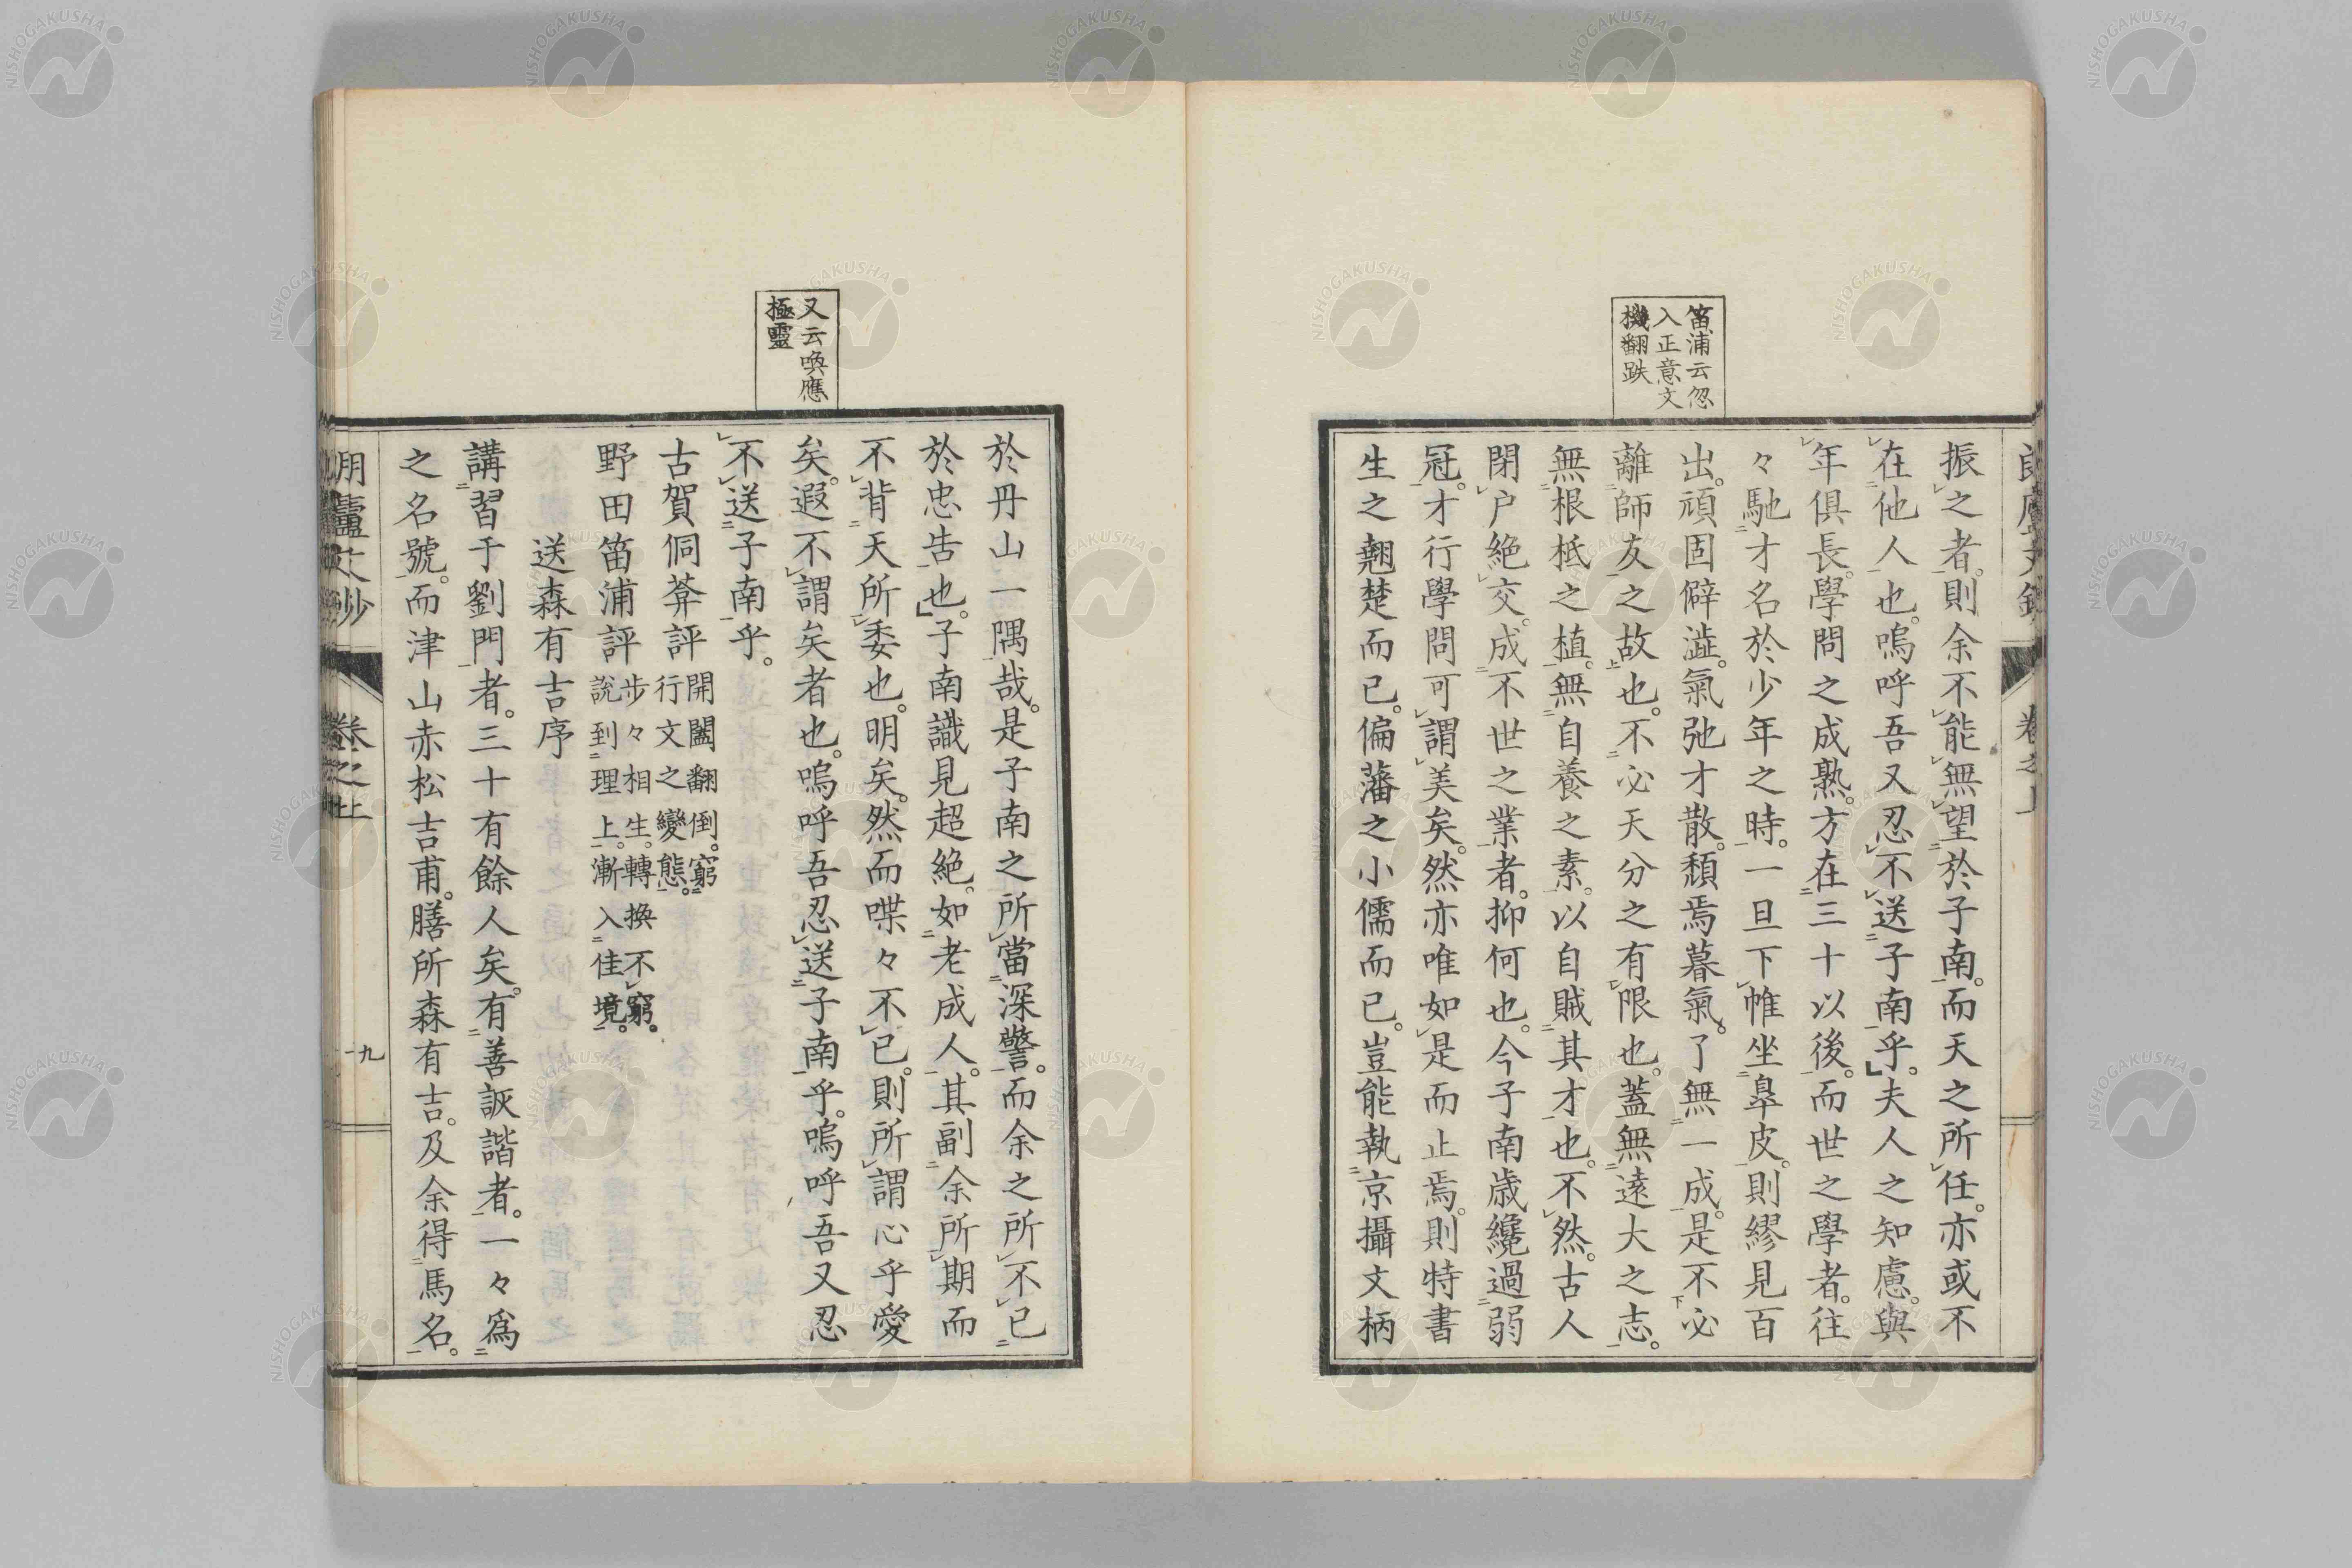 笛浦云忽
入正意文
機翻跌
振之者。則余不能無望於子南。而天之所任。亦或不
在他人也。嗚呼吾又忍不送子南乎。夫人之知慮。與
年俱長。學問之成熟。方在三十以後。而世之學者。往
々馳才名於少年之時。一旦下帷坐皐皮。則繆見百
出。頑固僻澁。氣弛才散。頹焉暮氣。了無一成。是不必
離師友之故也。不必天分之有限也。蓋無遠大之志。
無根柢之植。無自養之素。以自賊其才也。不然。古人
閉户絶交。成不世之業者。抑何也。今子南歳纔過弱
冠。才行學問可謂美矣。然亦唯如是而止焉。則特書
生之翹楚而已。偏藩之小儒而已。豈能執京攝文柄
又云喚應
極靈
於丹山一隅哉。是子南之所當深警。而余之所不已
於忠告也。子南識見超絶。如老成人。其副余所期而
不背天所委也。明矣。然而喋々不已。則所謂心乎愛
矣。遐不謂矣者也。嗚呼吾忍送子南乎。嗚呼吾又忍
不送子南乎。
古賀侗菴評
開闔翻倒。窮
行文之變態。
野田笛浦評
步々相生。轉換不窮。
説到理上。漸入佳境。
送森有吉序
講習于劉門者。三十有餘人矣。有善詼諧者。一々爲
之名號。而津山赤松吉甫。膳所森有吉。及余得馬名。
卷之上
九
NISHOGAKUSHA